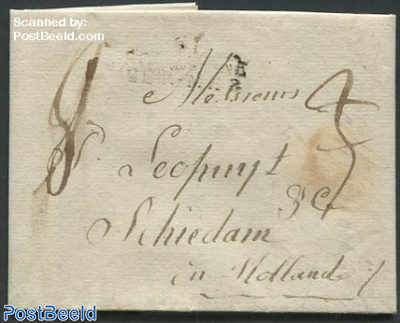 Scanned by:
PostBeeld.com
Messieurs
P. Leopuyt
&C
Schiedam
in Holland
PostBeeld.com